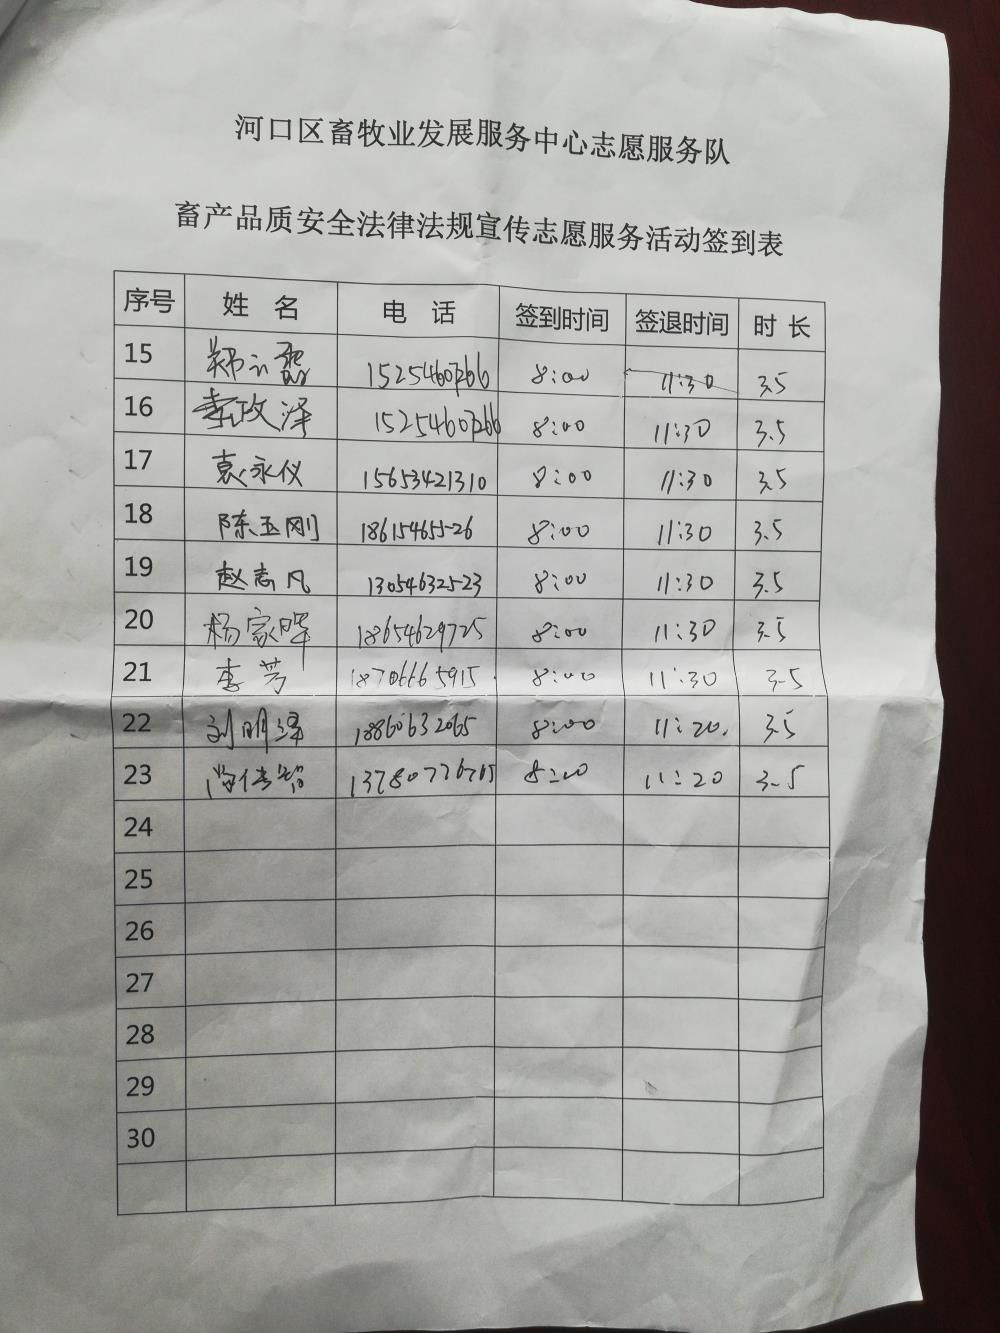 河口区畜牧业发展服务中心志愿服务队
畜产品质安全法律法规宣传志愿服务活动签到表
序号 姓 名 电 话 签到时间 签退时间 时 长
15 15254607266 8:00 11:30 3.5
16 李政泽 15254607266 8:00 11:30 3.5
17 袁永仪 15653421310 8:00 11:30 3.5
18 陈玉刚 8:00 11:30 3.5
19 赵志凡 13054632523 8:00 11:30 3.5
20 杨家晖 18654629725 8:00 11:30 3.5
21 李芳 18706665915 8:00 11:30 3.5
22 刘明泽 18860632065 8:00 11:20. 3.5
23 13780776765 8:00 11:20 3.5
24
25
26
27
28
29
30